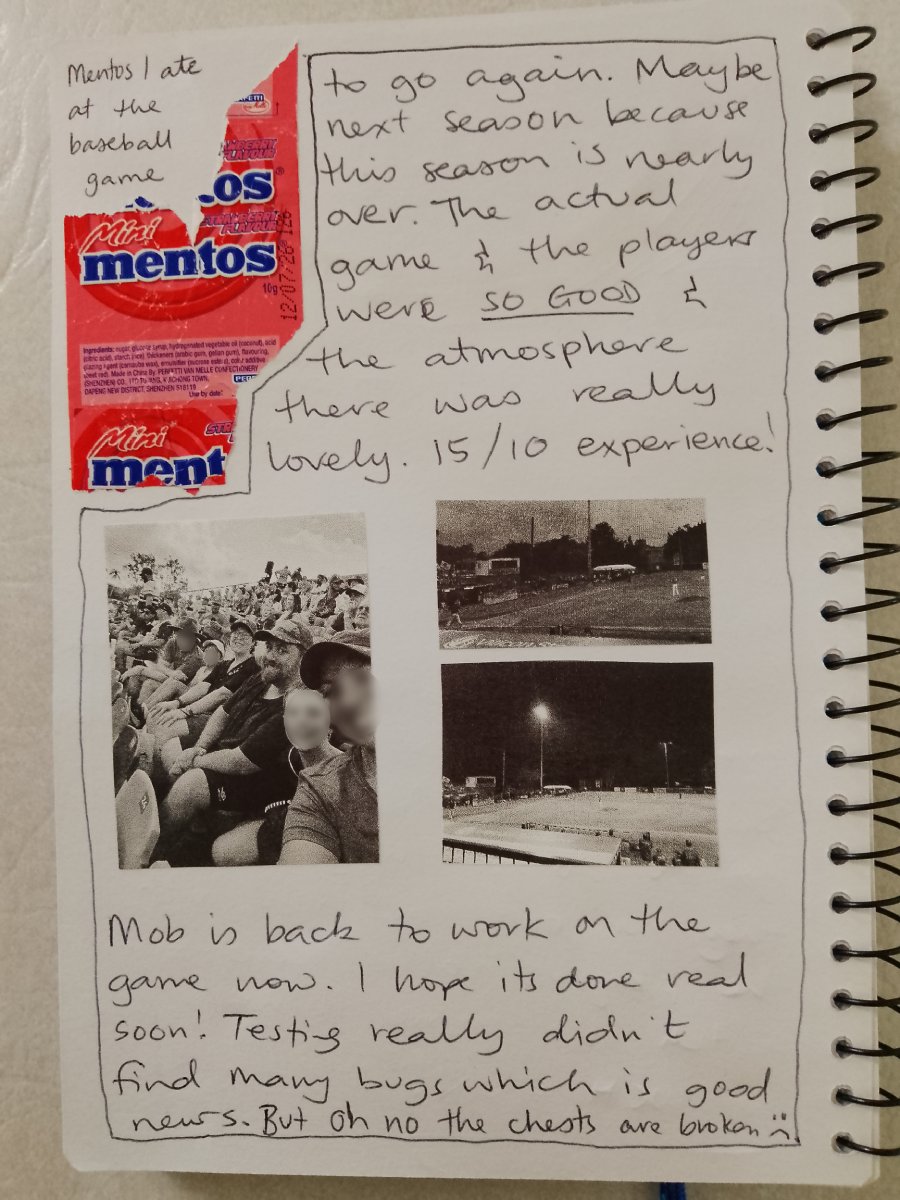 Mentos I ate
at the
baseball
game
to go again. Maybe
next season because
this season is nearly
over. The actual
game & the players
were SO GOOD &
the atmosphere
there was really
lovely. 15/10 experience!
FLAVOUR
tos
Mini
mentos
10g
12/07/26
Ingredients: sugar, glucose syrup, hydrogenated vegetable oil (coconut), acid
(citric acid), starch (rice), thickeners (arabic gum, gellan gum), flavouring,
glazing agent (carnauba wax), emulsifier (sucrose esters), colour additive
(beet red). Made in China By: PERFETTI VAN MELLE CONFECTIONERY
(SHENZHEN) CO., LTD
DAPENG NEW DISTRICT, SHENZHEN 518119
Use by date:
Mini
ment
Mob is back to work on the
game now. I hope its done real
soon! Testing really didn't
find many bugs which is good
news. But oh no the chests are broken :(